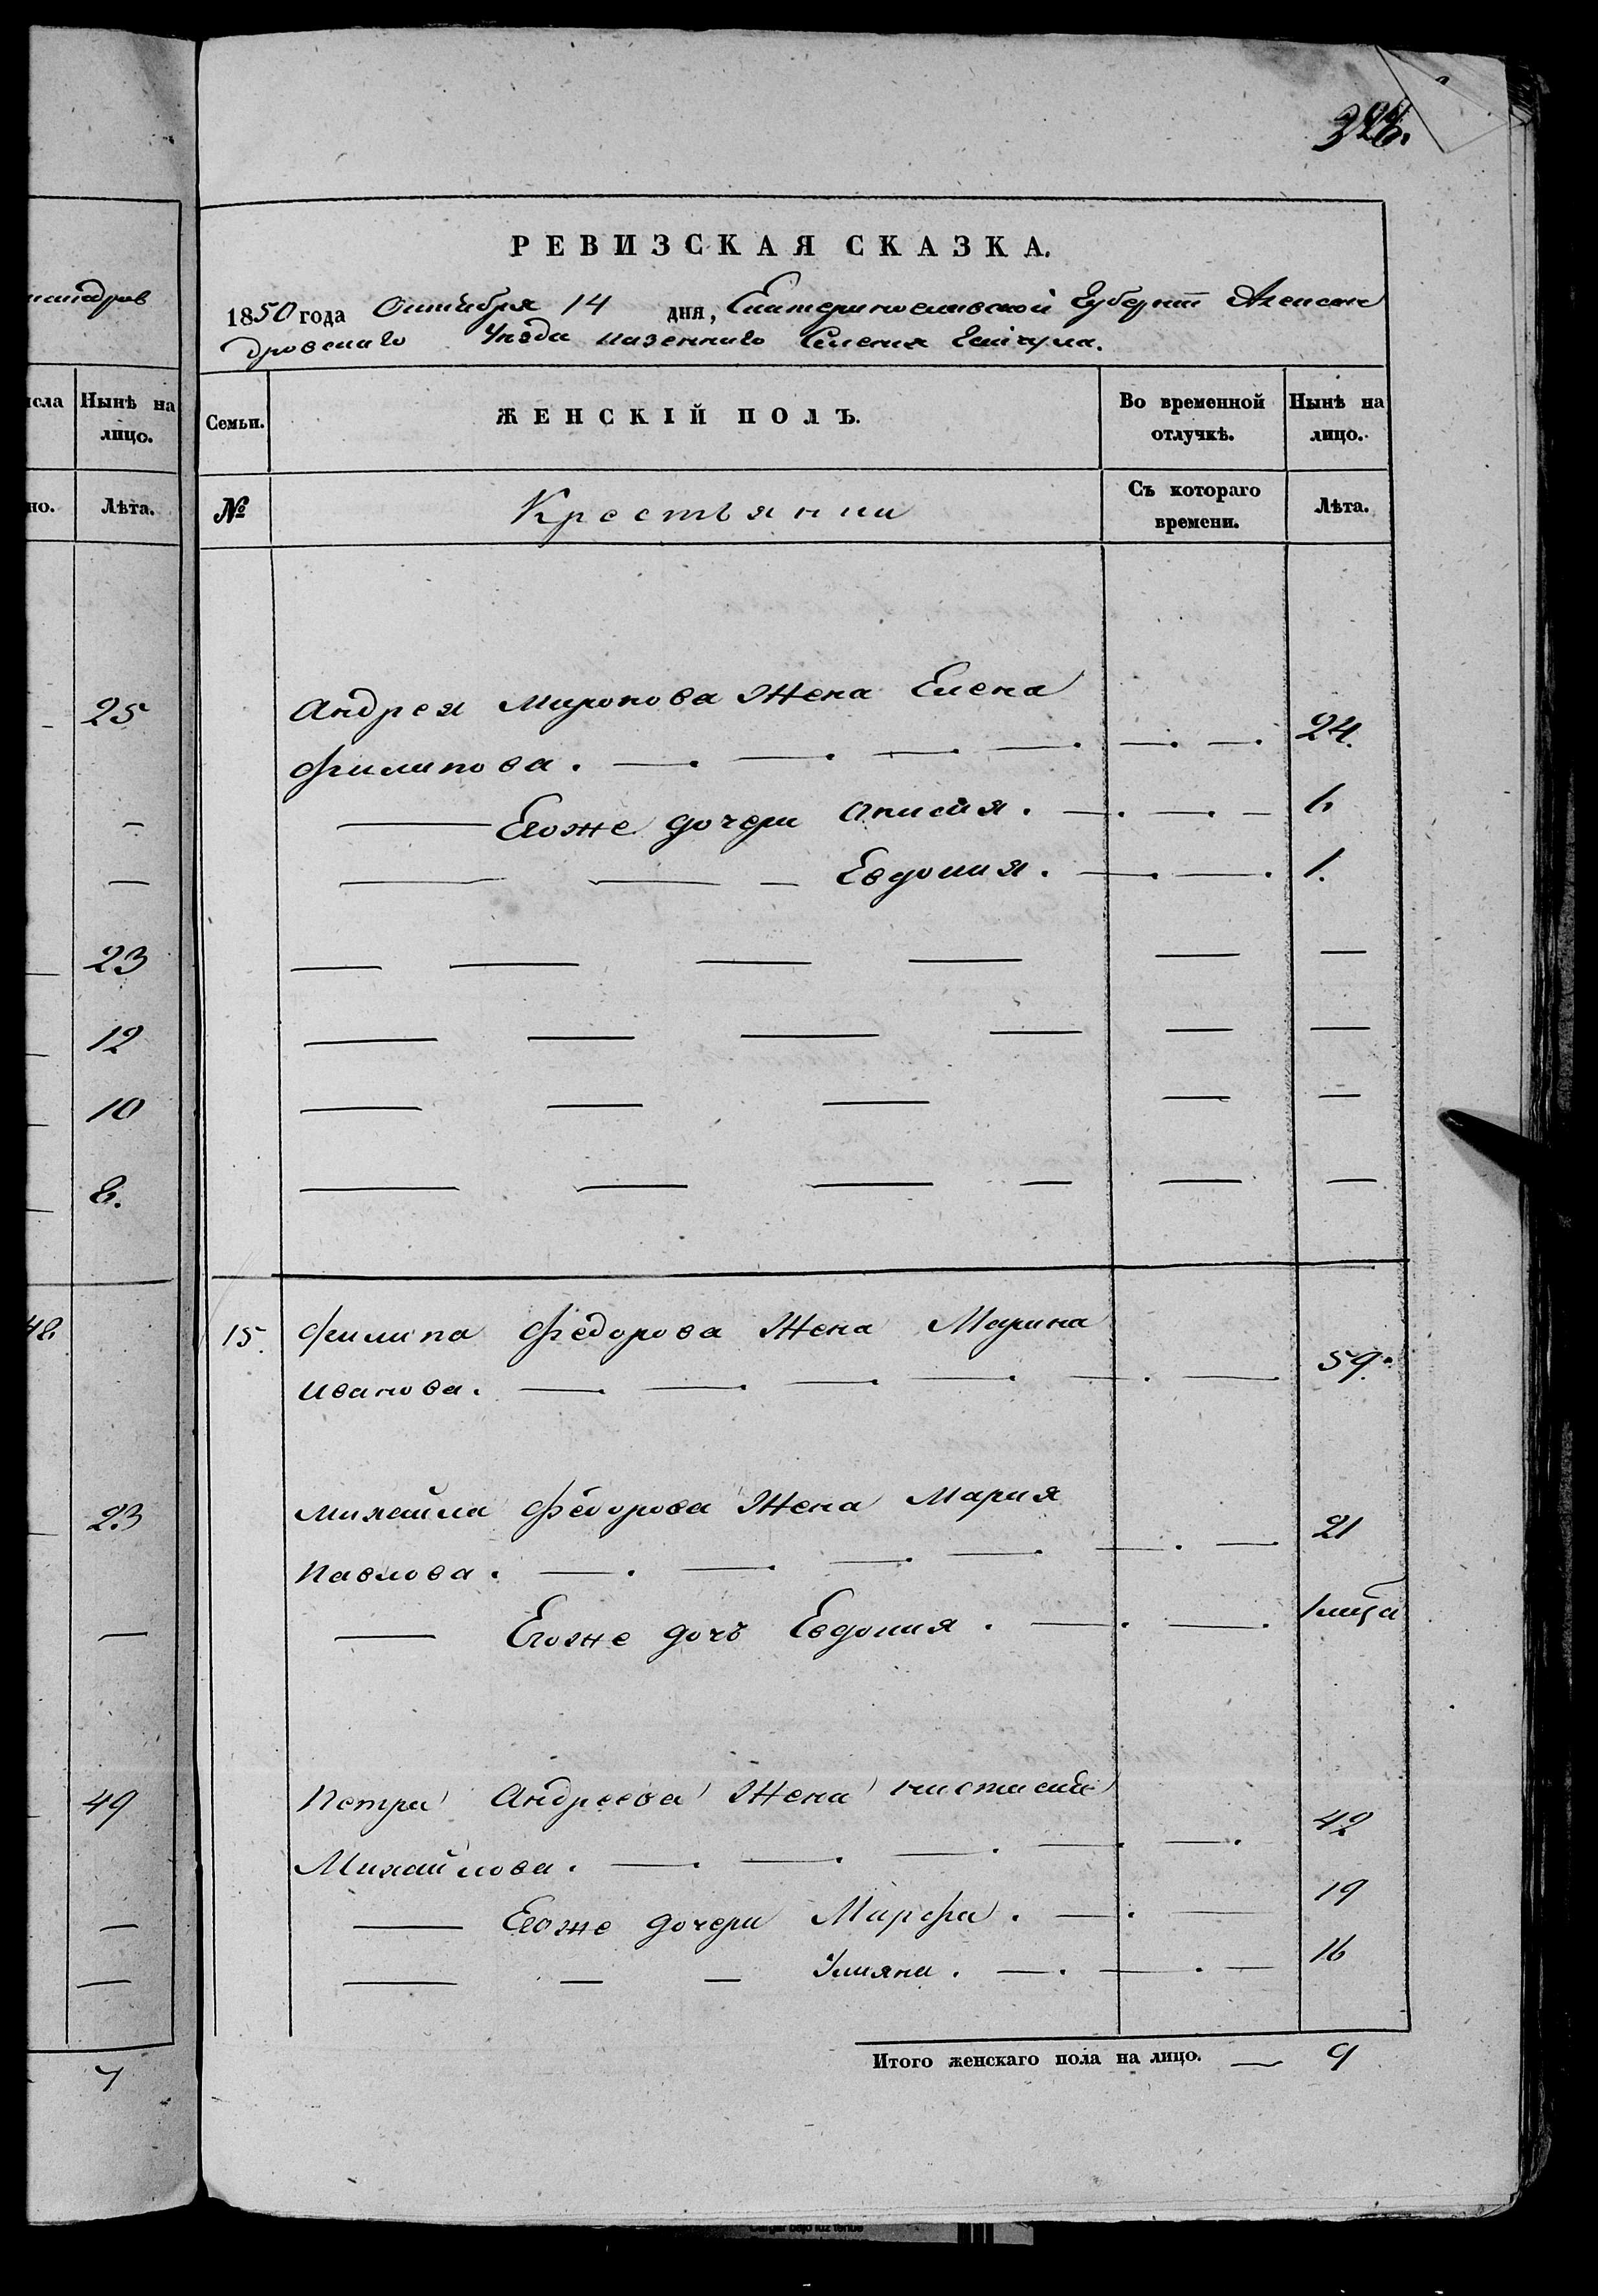 РЕВИЗСКАЯ СКАЗКА.
1850 года Октября 14 дня, Екатеринославской Губерніи Алексан
дровскаго Уѣзда казеннаго Селенія
сла
Нынѣ на
лицо.
Семьи.
ЖЕНСКІЙ ПОЛЪ.
Во временной
отлучкѣ.
Нынѣ на
лицо.
но.
Лѣта.
№
Крестьянки
Съ котораго
времени.
Лѣта.
25
Андрея Миронова Жена Елена
Филипова. 24.
— Егоже дочери Анисія. 6
— — — Евдокия. 1.
23
12
10
8.
48
15. Филипа Федорова Жена Марина
Иванова. 59.
23
Михайла Федорова Жена Мария
Павлова. 21
— Егоже дочь Евдокия.
49
Петра Андреева Жена
Михайлова. 42
— Егоже дочери Марфа. 19
— — — Ульяна. 16
Итого женскаго пола на лицо. — 9